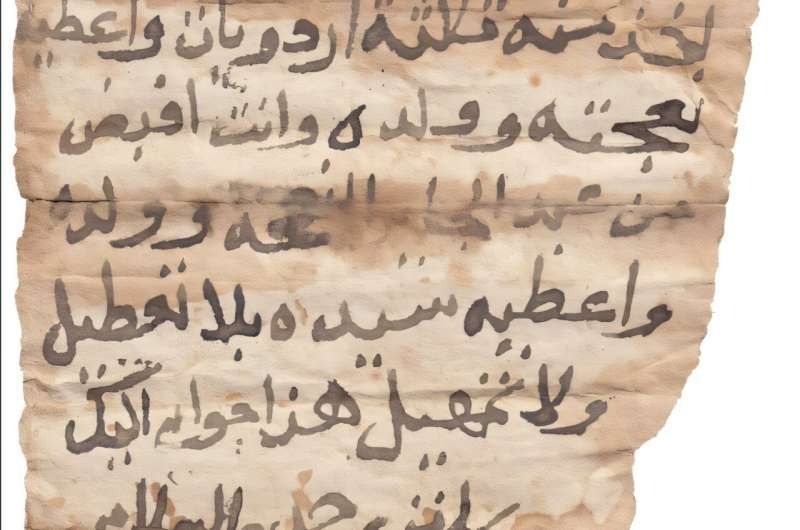 منه تلاتة اردويات واعطيه
نعجته وولده وانت اقبض
من عبد النعجه وولده
واعطيه سيده بلا تعطيل
ولا تمهيل هذا اليك
والسلام